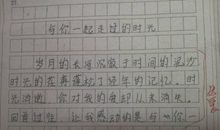 与你一起走过的时光
岁月的长河沉淀于时间的
时光的在再蓬松了经年的记忆。时
光流逝，你对我的爱却从未消失。
回首过往，让我感动的是与你一